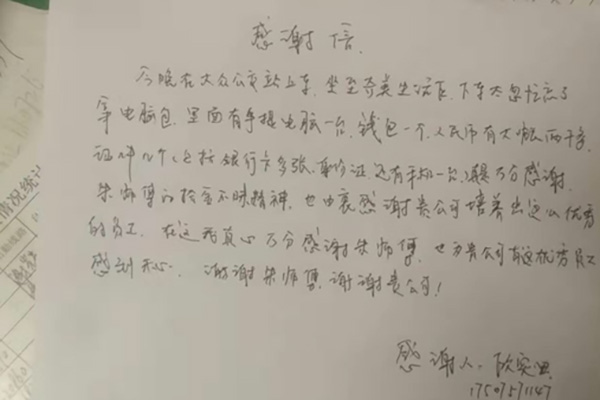 感谢信.
今晚在大众公交站上车,坐至奇美生活下,下车太急忘忘了
拿电脑包,里面有手提电脑一台,钱包一个,人民币有大概两千多,
证件几个包括银行卡多张,身份证,还有手机一台,万分感谢
朱师傅的拾金不昧精神,也由衷感谢贵公司培养出这么优秀
的员工,在这我真心万分感谢朱师傅,也为贵公司有这优秀员工
感到开心,谢谢朱师傅,谢谢贵公司!
感谢人:欧
17507571147
情况统计